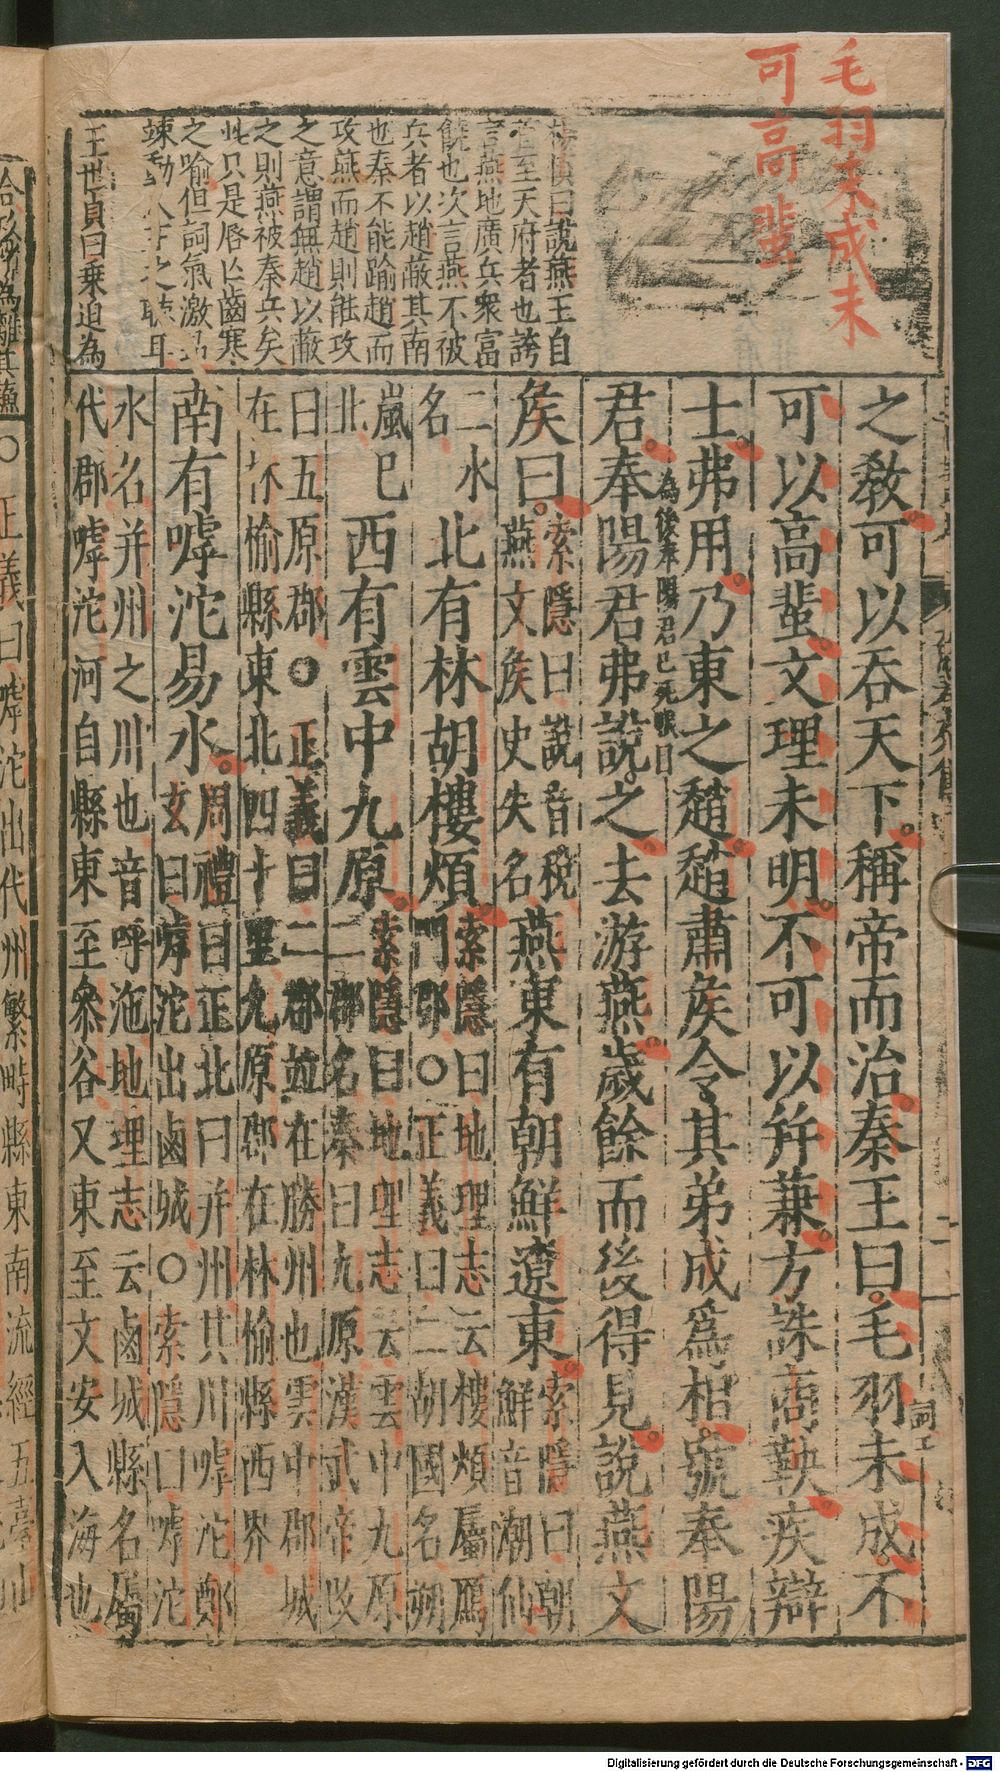 毛羽未成未
可高蜚
之敎可以吞天下稱帝而治秦王曰毛羽未成不
可以高蜚文理未明不可以幷兼方誅商鞅疾辯
士弗用乃東之趙趙肅侯令其弟成爲相號奉陽
君奉陽君弗說之去游燕歲餘而後得見說燕文
為後奉陽君已死 日
侯曰
索隱曰說音稅
燕文侯史失名
燕東有朝鮮遼東
索隱曰朝
鮮音潮仙
二水
名
北有林胡樓煩
索隱曰地理志云樓煩屬鴈
門郡○正義曰二胡國名朔
嵐已
北
西有雲中九原
索隱曰地理志云雲中九原
二郡名秦曰九原漢武帝改
曰五原郡○正義曰二郡並在勝州也雲中郡城
在 榆縣東北四十里九原郡在林榆縣西界
南有嘑沱易水
周禮曰正北曰并州其川嘑沱鄭
玄曰嘑沱出鹵城○索隱曰嘑沱
水名并州之川也音呼沲地理志云鹵城縣名屬
代郡嘑沱河自縣東至參谷又東至文安入海也
楊慎曰說燕王自
首至天府者也誇
言燕地廣兵衆富
饒也次言燕不被
兵者以趙蔽其南
也秦不能踰趙而
攻燕而趙則能攻
之意謂無趙以蔽
之則燕被秦兵矣
此只是唇亾齒寒
之喻但詞氣激昂
竦動人主之聽耳
王世貞曰乗迫為
○正義曰嘑沱出代州繁畤縣東南流經五臺山
Digitalisierung gefördert durch die Deutsche Forschungsgemeinschaft - DFG